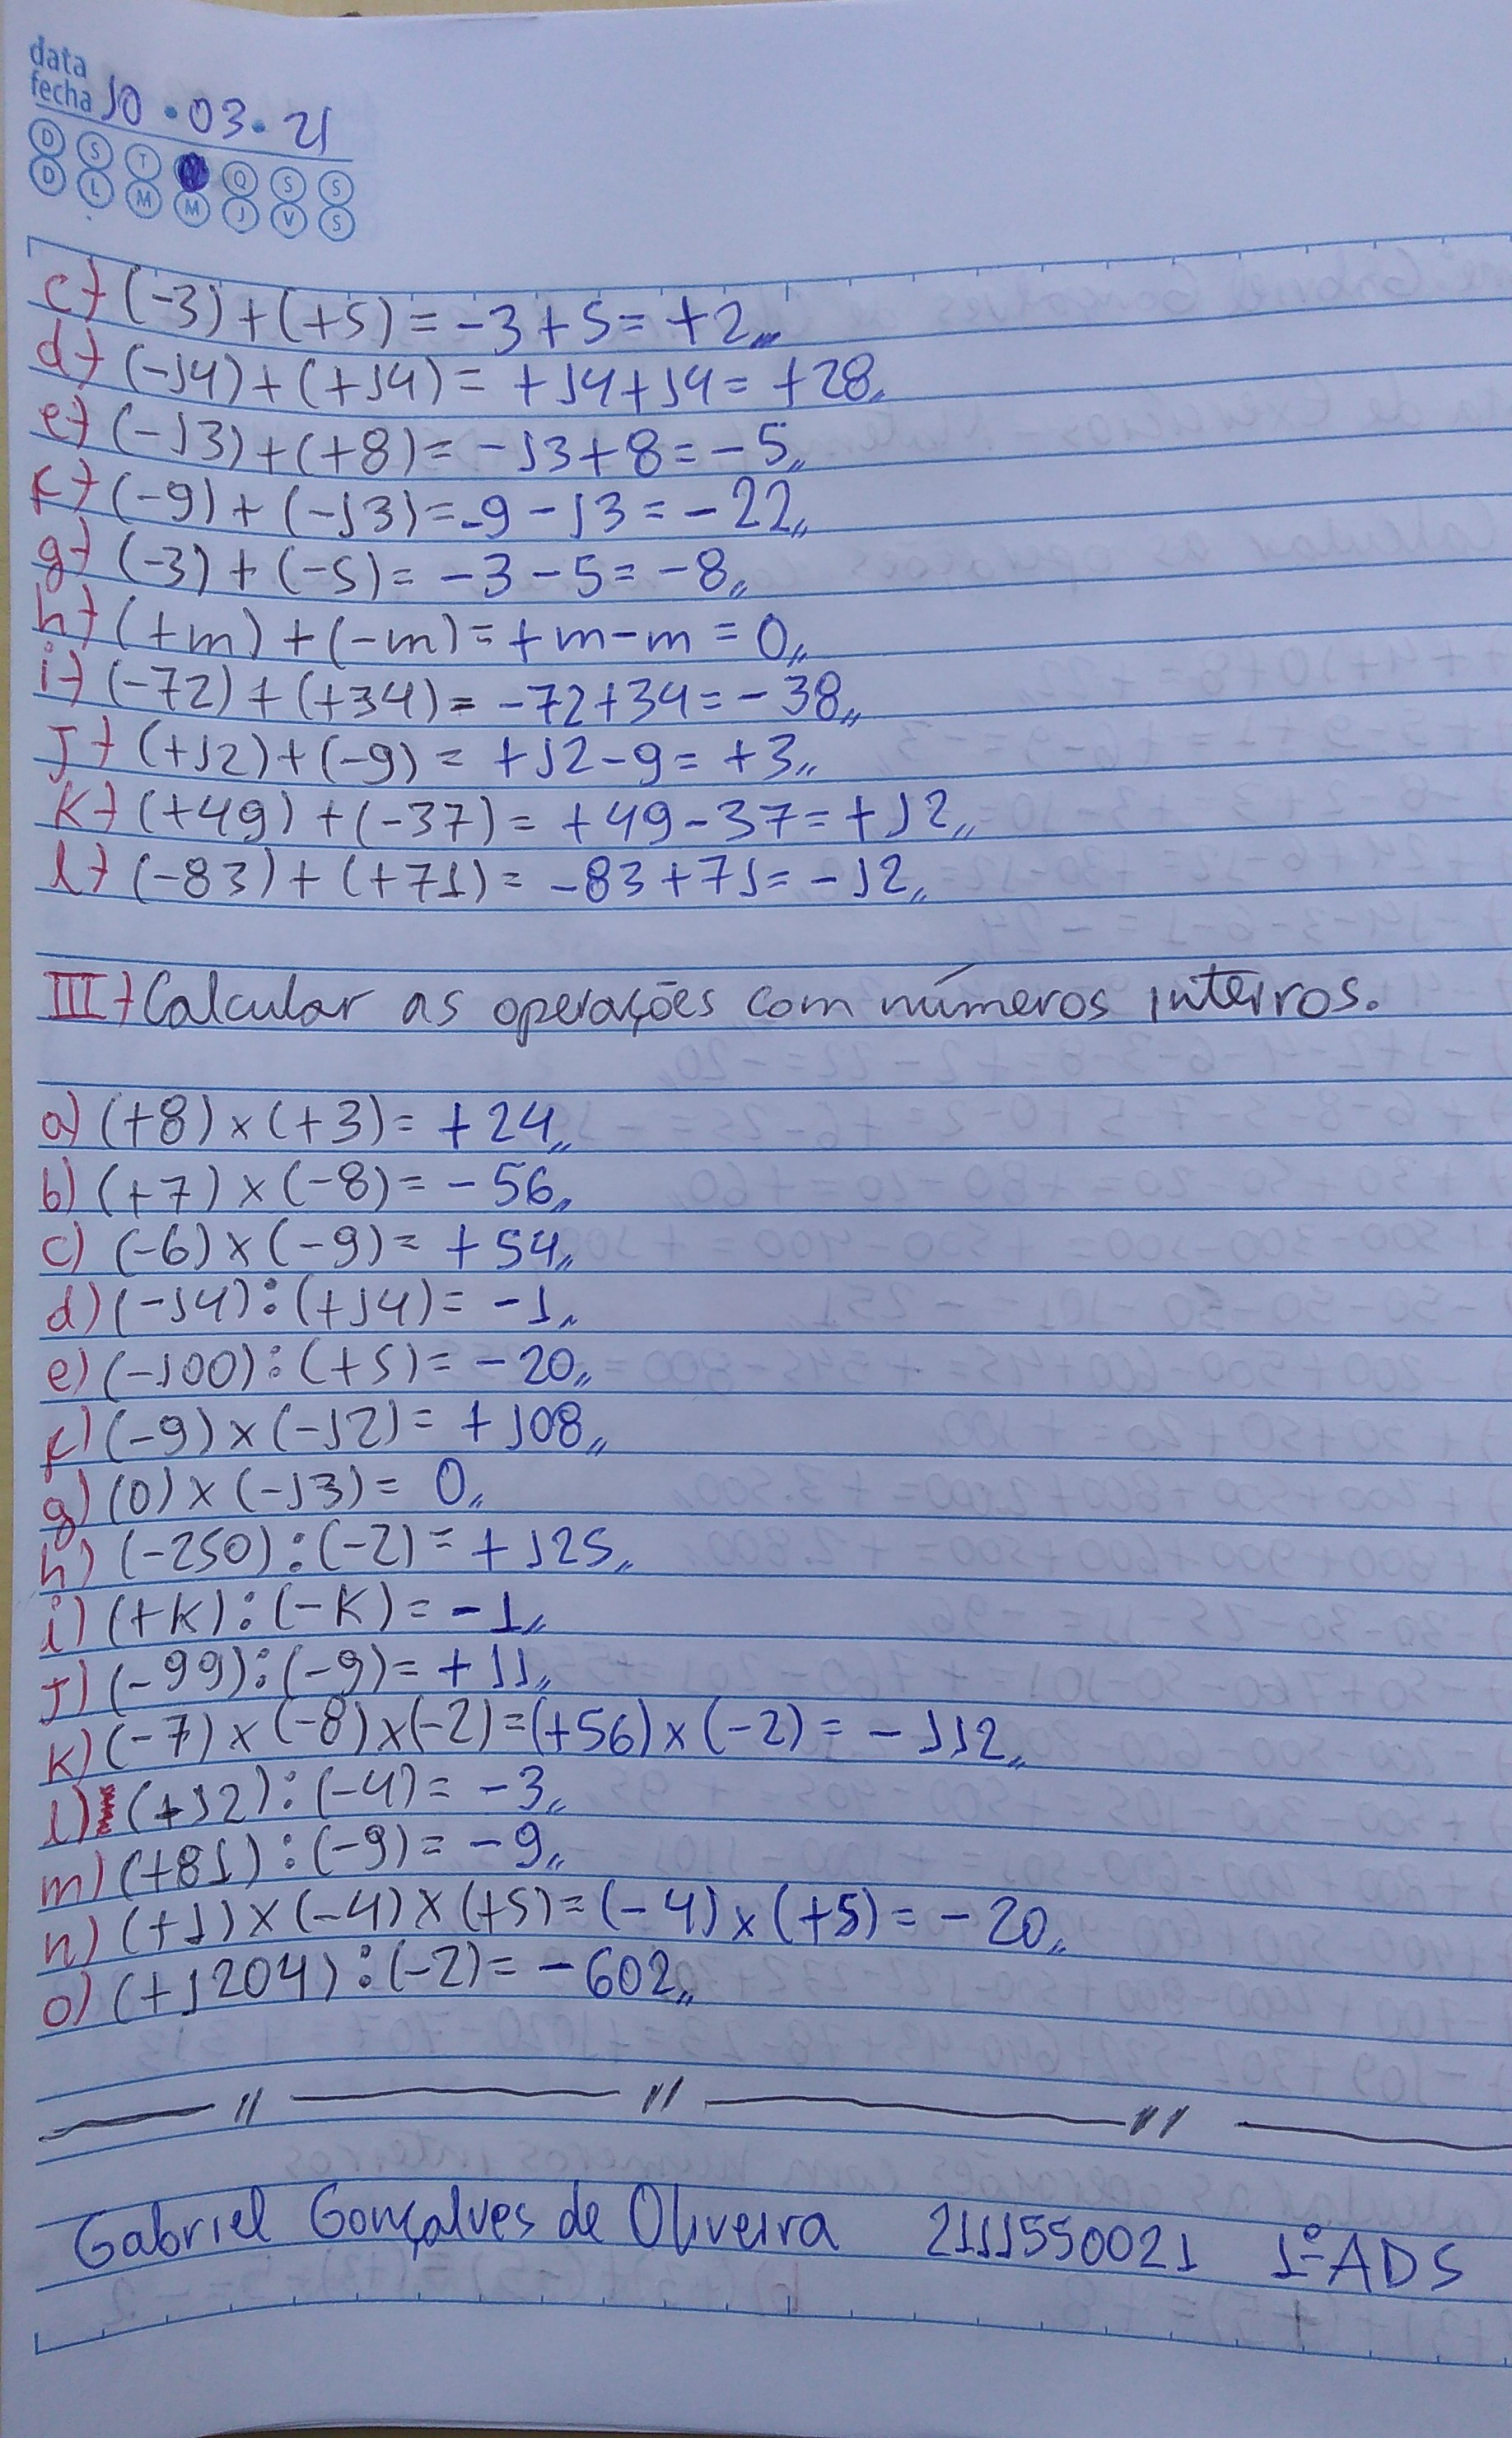 data
fecha 10 . 03 . 21
D S T Q Q S S
D L M M J V S
c) (-3) + (+5) = -3 + 5 = +2
d) (-14) + (+14) = +14 + 14 = +28
e) (-13) + (+8) = -13 + 8 = -5
f) (-9) + (-13) = -9 - 13 = -22
g) (-3) + (-5) = -3 - 5 = -8
h) (+m) + (-m) = +m - m = 0
i) (-72) + (+34) = -72 + 34 = -38
j) (+12) + (-9) = +12 - 9 = +3
k) (+49) + (-37) = +49 - 37 = +12
l) (-83) + (+71) = -83 + 71 = -12
III) Calcular as operações com números inteiros.
a) (+8) x (+3) = +24
b) (+7) x (-8) = -56
c) (-6) x (-9) = +54
d) (-14) : (+14) = -1
e) (-100) : (+5) = -20
f) (-9) x (-12) = +108
g) (0) x (-13) = 0
h) (-250) : (-2) = +125
i) (+k) : (-k) = -1
j) (-99) : (-9) = +11
k) (-7) x (-8) x (-2) = (+56) x (-2) = -112
l) (+12) : (-4) = -3
m) (+81) : (-9) = -9
n) (+1) x (-4) x (+5) = (-4) x (+5) = -20
o) (+1204) : (-2) = -602
Gabriel Gonçalves de Oliveira 2111550021 1º ADS